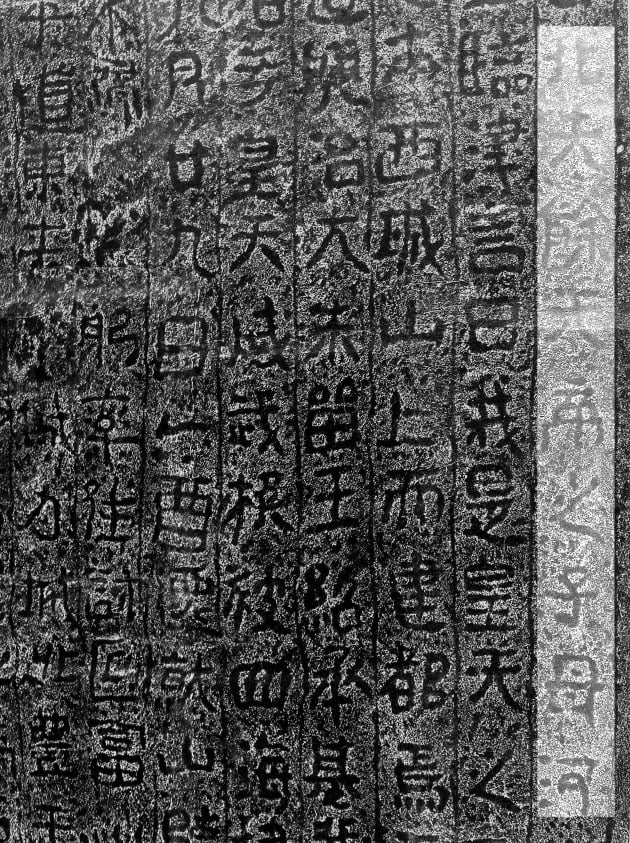 北夫餘天帝之子母河
臨津言曰我是皇天之
本西城山上而建都焉
興治大朱留王紹承基
于皇天威武振被四海
月廿九日乙酉遷就山陵
不躬率往討叵富
道東來城力城北豊五